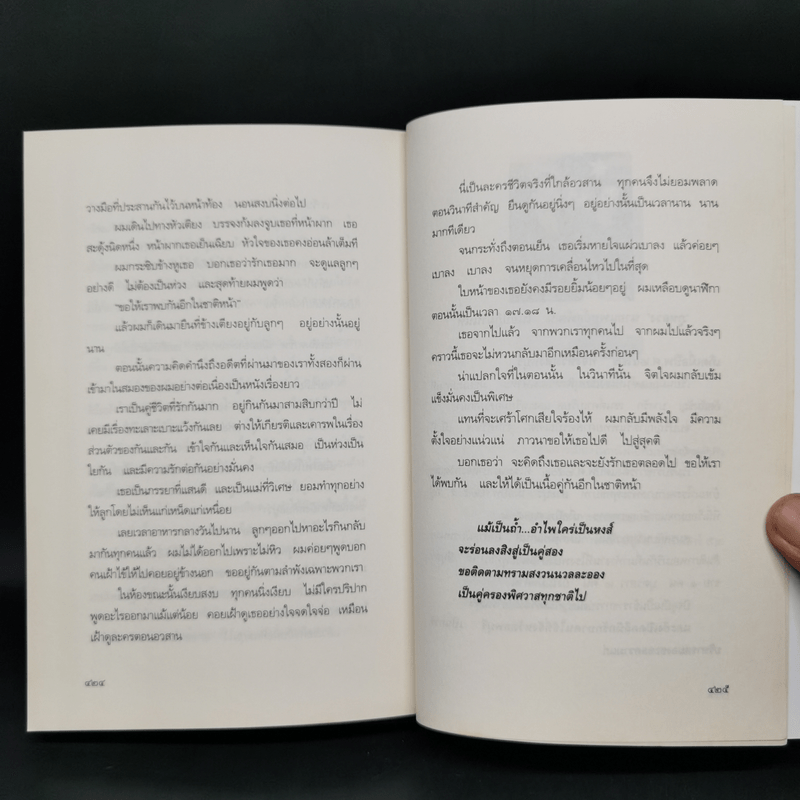 วางมือที่ประสานกันไว้บนหน้าท้อง นอนสงบนิ่งต่อไป
ผมเดินไปทางหัวเตียง บรรจงก้มลงจูบเธอที่หน้าผาก เธอ
สะดุ้งนิดหนึ่ง หน้าผากเธอเย็นเฉียบ หัวใจของเธอคงอ่อนล้าเต็มที
ผมกระซิบข้างหูเธอ บอกเธอว่ารักเธอมาก จะดูแลลูกๆ
อย่างดี ไม่ต้องเป็นห่วง และสุดท้ายผมพูดว่า
"ขอให้เราพบกันอีกในชาติหน้า"
แล้วผมก็เดินมายืนที่ข้างเตียงอยู่กับลูกๆ อยู่อย่างนั้นอยู่
นาน
ตอนนั้นความคิดคำนึงถึงอดีตที่ผ่านมาของเราทั้งสองก็ผ่าน
เข้ามาในสมองของผมอย่างต่อเนื่องเป็นหนังเรื่องยาว
เราเป็นคู่ชีวิตที่รักกันมาก อยู่กินกันมาสามสิบกว่าปี ไม่
เคยมีเรื่องทะเลาะเบาะแว้งกันเลย ต่างให้เกียรติและเคารพในเรื่อง
ส่วนตัวของกันและกัน เข้าใจกันและเห็นใจกันเสมอ เป็นห่วงเป็น
ใยกัน และมีความรักต่อกันอย่างมั่นคง
เธอเป็นภรรยาที่แสนดี และเป็นแม่ที่วิเศษ ยอมทำทุกอย่าง
ให้ลูกโดยไม่เห็นแก่เหน็ดแก่เหนื่อย
เลยเวลาอาหารกลางวันไปนาน ลูกๆออกไปหาอะไรกินกลับ
มากันทุกคนแล้ว ผมไม่ได้ออกไปเพราะไม่หิว ผมค่อยๆพูดบอก
คนเฝ้าไข้ให้ไปคอยอยู่ข้างนอก ขออยู่กันตามลำพังเฉพาะพวกเรา
ในห้องขณะนั้นเงียบสงบ ทุกคนนิ่งเงียบ ไม่มีใครปริปาก
พูดอะไรออกมาแม้แต่น้อย คอยเฝ้าดูเธออย่างใจจดใจจ่อ เหมือน
เฝ้าดูละครตอนอวสาน
๔๒๔
นี่เป็นละครชีวิตจริงที่ใกล้อวสาน ทุกคนจึงไม่ยอมพลาด
ตอนวินาทีสำคัญ ยืนดูกันอยู่นิ่งๆ อยู่อย่างนั้นเป็นเวลานาน นาน
มากทีเดียว
จนกระทั่งถึงตอนเย็น เธอเริ่มหายใจแผ่วเบาลง แล้วค่อยๆ
เบาลง เบาลง จนหยุดการเคลื่อนไหวไปในที่สุด
ใบหน้าของเธอยังคงมีรอยยิ้มน้อยๆอยู่ ผมเหลือบดูนาฬิกา
ตอนนั้นเป็นเวลา ๑๗.๑๘ น.
เธอจากไปแล้ว จากพวกเราทุกคนไป จากผมไปแล้วจริงๆ
คราวนี้เธอจะไม่หวนกลับมาอีกเหมือนครั้งก่อนๆ
น่าแปลกใจที่ในตอนนั้น ในวินาทีนั้น จิตใจผมกลับเข้ม
แข็งมั่นคงเป็นพิเศษ
แทนที่จะเศร้าโศกเสียใจร้องไห้ ผมกลับมีพลังใจ มีความ
ตั้งใจอย่างแน่วแน่ ภาวนาขอให้เธอไปดี ไปสู่สุคติ
บอกเธอว่า จะคิดถึงเธอและจะยังรักเธอตลอดไป ขอให้เรา
ได้พบกัน และให้ได้เป็นเนื้อคู่กันอีกในชาติหน้า
แม้เป็นถ้ำ...อำไพใคร่เป็นหงส์
จะร่อนลงสิงสู่เป็นคู่สอง
ขอติดตามทรามสงวนนวลละออง
เป็นคู่ครองพิศวาสทุกชาติไป
๔๒๕